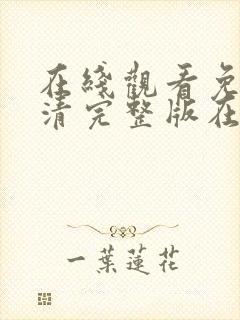 在綫觀看免
清完整版在
一葉蓮花